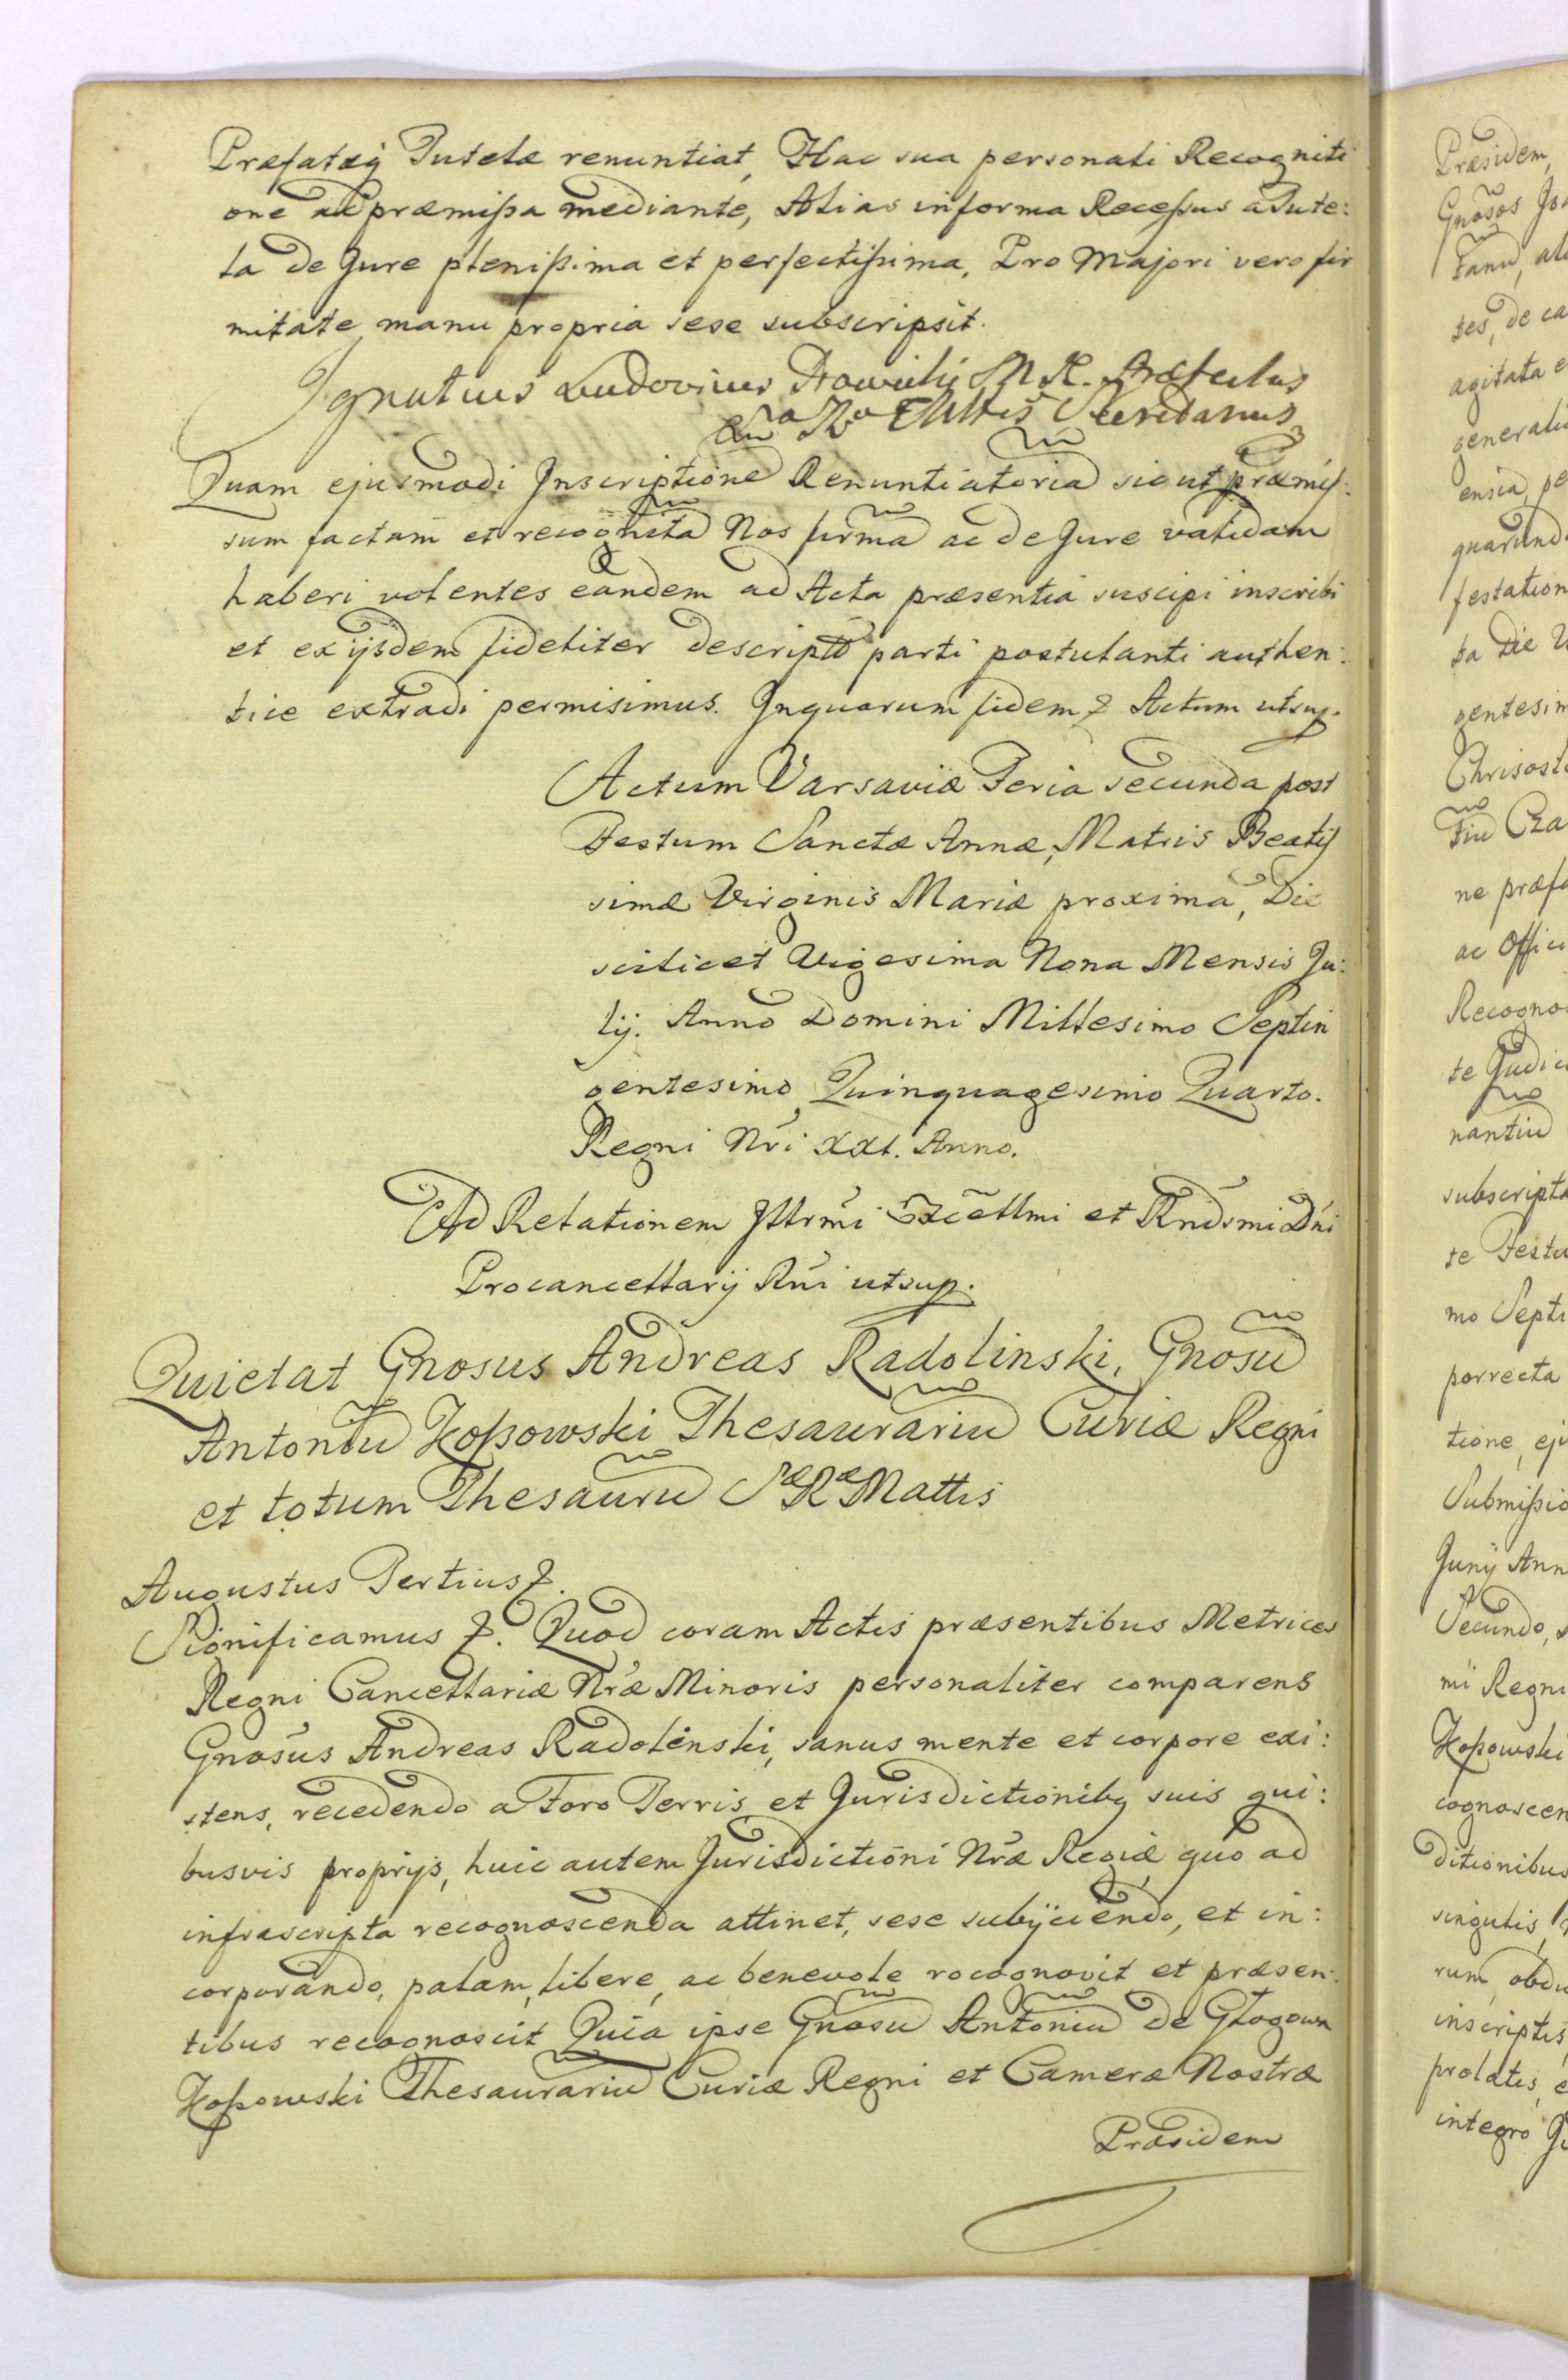 Præfatæq Tutelæ renuntiat, Hac sua personali Recogniti
one ad præmißa mediante, Alias informa Receßus a Tute:
la de Jure plenißima et perfectißima, Pro Majori vero fir
mitate manu propria sese subscripsit.
Ignatius Ludovicus M R. Præfectus
Sæ Ræ Mttis Secretarius
Quam ejusmodi Inscriptione Renuntiatoria sicut præmis:
sum factam et recognita Nos firma ac de Jure validam
haberi volentes eandem ad Acta præsentia suscipi inscribi
et exijsdem fideliter descripto parti postulanti authen:
tice extradi permisimus. Inquorum fidem & Actum utsup.
Actum Varsaviæ Feria secunda post
Festum Sanctæ Annæ, Matris Beatis
simæ Virginis Mariæ proxima, Die
scilicet Vigesima Nona Mensis Ju:
lij. Anno Domini Millesimo Septin
gentesimo Quinquagesimo Quarto.
Regni Nri XXI. Anno.
Ad Relationem Illrmi Excellmi et Rndsmi Dni
Procancellarij Rni utsup.
Quietat Gnosus Andreas Radolinski, Gnosu
Antoniu Koßowski Thesaurariu Curiæ Regni
et totum Thesauru Sæ Ræ Mattis
Augustus Tertius &.
Significamus &. Quod coram Actis præsentibus Metrices
Regni Cancellariæ Nræ Minoris personaliter comparens
Gnosus Andreas Radolinski, sanus mente et corpore exi:
stens, recedendo a Foro Terris et Jurisdictioniby suis qui:
busvis proprijs, huic autem Jurisdictioni Nræ Regiæ quo ad
infrascripta recognoscenda attinet, sese subijciendo, et in:
corporando, palam, libere, ac benevole rocognovit et præsen:
tibus recognoscit Quia ipse Gnosu Antoniu de Głogowa
Koßowski Thesaurariu Curiæ Regni et Cameræ Nostræ
Præsidem
Præsidem,
Gnosos
tanu,
tes, de
agitata
generali
ensia
festation
ta Die
gentesim
Chrisosto
ne
ac Offici
Recogno
te Judici
nantiu
subscripta
te Festu
mo Septi
porrecta
tione,
Submißio
Junij Ann
Secundo,
mi Regni
Koßowski
cognoscen
ditionibus
singulis,
rum,
inscriptis
prolatis,
integro